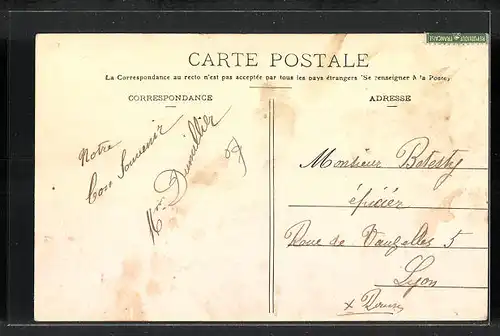 REPUBLIQUE FRANCAISE
CARTE POSTALE
La Correspondance au recto n'est pas acceptée par tous les pays étrangers (Se renseigner à la Poste)
CORRESPONDANCE
ADRESSE
Notre
bon Souvenir
Monsieur
épicier
Rue de Vauzelles 5
Lyon